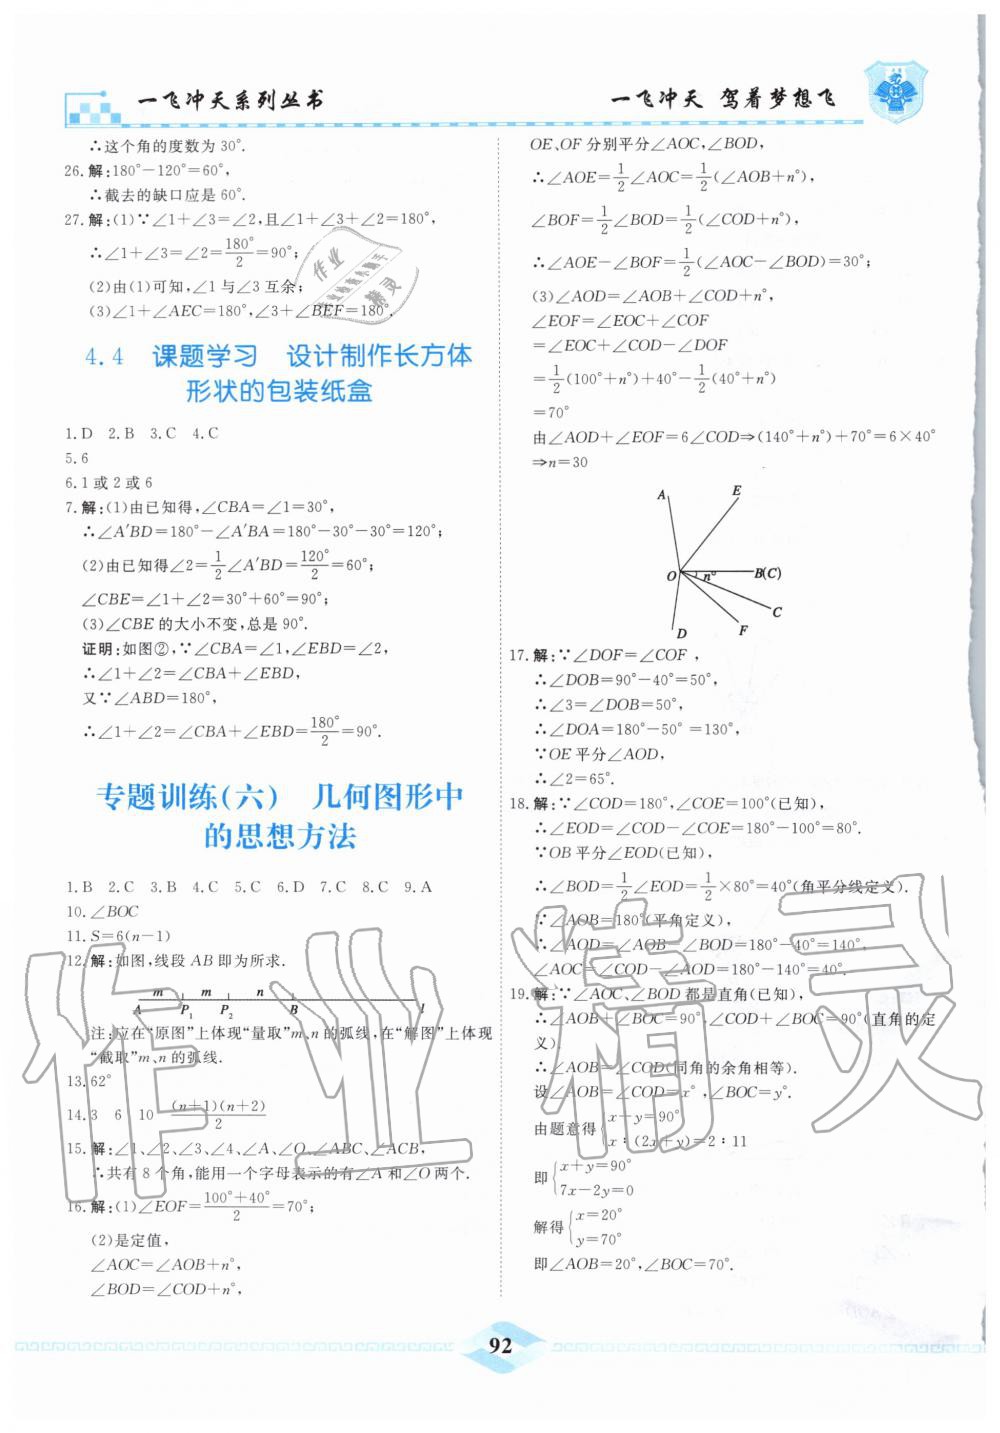 一飞冲天系列丛书
一飞冲天 驾着梦想飞
∴这个角的度数为30°.
26.解:180°−120°=60°,
∴截去的缺口应是60°.
27.解:(1)∵∠1+∠3=∠2,且∠1+∠3+∠2=180°,
∴∠1+∠3=∠2=180°/2=90°;
(2)由(1)可知,∠1与∠3互余;
(3)∠1+∠AEC=180°,∠3+∠BEF=180°.
4.4 课题学习 设计制作长方体
形状的包装纸盒
1.D 2.B 3.C 4.C
5.6
6.1或2或6
7.解:(1)由已知得,∠CBA=∠1=30°,
∴∠A′BD=180°−∠A′BA=180°−30°−30°=120°;
(2)由已知得∠2=1/2∠A′BD=120°/2=60°;
∠CBE=∠1+∠2=30°+60°=90°;
(3)∠CBE的大小不变,总是90°.
证明:如图②,∵∠CBA=∠1,∠EBD=∠2,
∴∠1+∠2=∠CBA+∠EBD,
又∵∠ABD=180°,
∴∠1+∠2=∠CBA+∠EBD=180°/2=90°.
专题训练(六) 几何图形中
的思想方法
1.B 2.C 3.B 4.C 5.C 6.D 7.C 8.C 9.A
10.∠BOC
11.S=6(n−1)
12.解:如图,线段AB即为所求.
m m n
A P1 P2 B l
注:应在“原图”上体现“量取”m、n的弧线,在“解图”上体现
“截取”m、n的弧线.
13.62°
14.3 6 10 (n+1)(n+2)/2
15.解:∠1、∠2、∠3、∠4、∠A、∠O、∠ABC、∠ACB,
∴共有8个角,能用一个字母表示的有∠A和∠O两个.
16.解:(1)∠EOF=(100°+40°)/2=70°;
(2)是定值,
∠AOC=∠AOB+n°,
∠BOD=∠COD+n°,
OE、OF分别平分∠AOC,∠BOD,
∴∠AOE=1/2∠AOC=1/2(∠AOB+n°),
∠BOF=1/2∠BOD=1/2(∠COD+n°),
∴∠AOE−∠BOF=1/2(∠AOC−∠BOD)=30°;
(3)∠AOD=∠AOB+∠COD+n°,
∠EOF=∠EOC+∠COF
=∠EOC+∠COD−∠DOF
=1/2(100°+n°)+40°−1/2(40°+n°)
=70°
由∠AOD+∠EOF=6∠COD⇒(140°+n°)+70°=6×40°
⇒n=30
A E
O n° B(C)
C
D F
17.解:∵∠DOF=∠COF,
∴∠DOB=90°−40°=50°,
∴∠3=∠DOB=50°,
∴∠DOA=180°−50°=130°,
∵OE平分∠AOD,
∴∠2=65°.
18.解:∵∠COD=180°,∠COE=100°(已知),
∴∠EOD=∠COD−∠COE=180°−100°=80°.
∵OB平分∠EOD(已知),
∴∠BOD=1/2∠EOD=1/2×80°=40°(角平分线定义).
∵∠AOB=180°(平角定义),
∴∠AOD=∠AOB−∠BOD=180°−40°=140°,
∠AOC=∠COD−∠AOD=180°−140°=40°.
19.解:∵∠AOC、∠BOD都是直角(已知),
∴∠AOB+∠BOC=90°,∠COD+∠BOC=90°(直角的定
义).
∴∠AOB=∠COD(同角的余角相等).
设∠AOB=∠COD=x°,∠BOC=y°.
由题意得{x+y=90°
x∶(2x+y)=2∶11
即{x+y=90°
7x−2y=0
解得{x=20°
y=70°
即∠AOB=20°,∠BOC=70°.
92
作业精灵